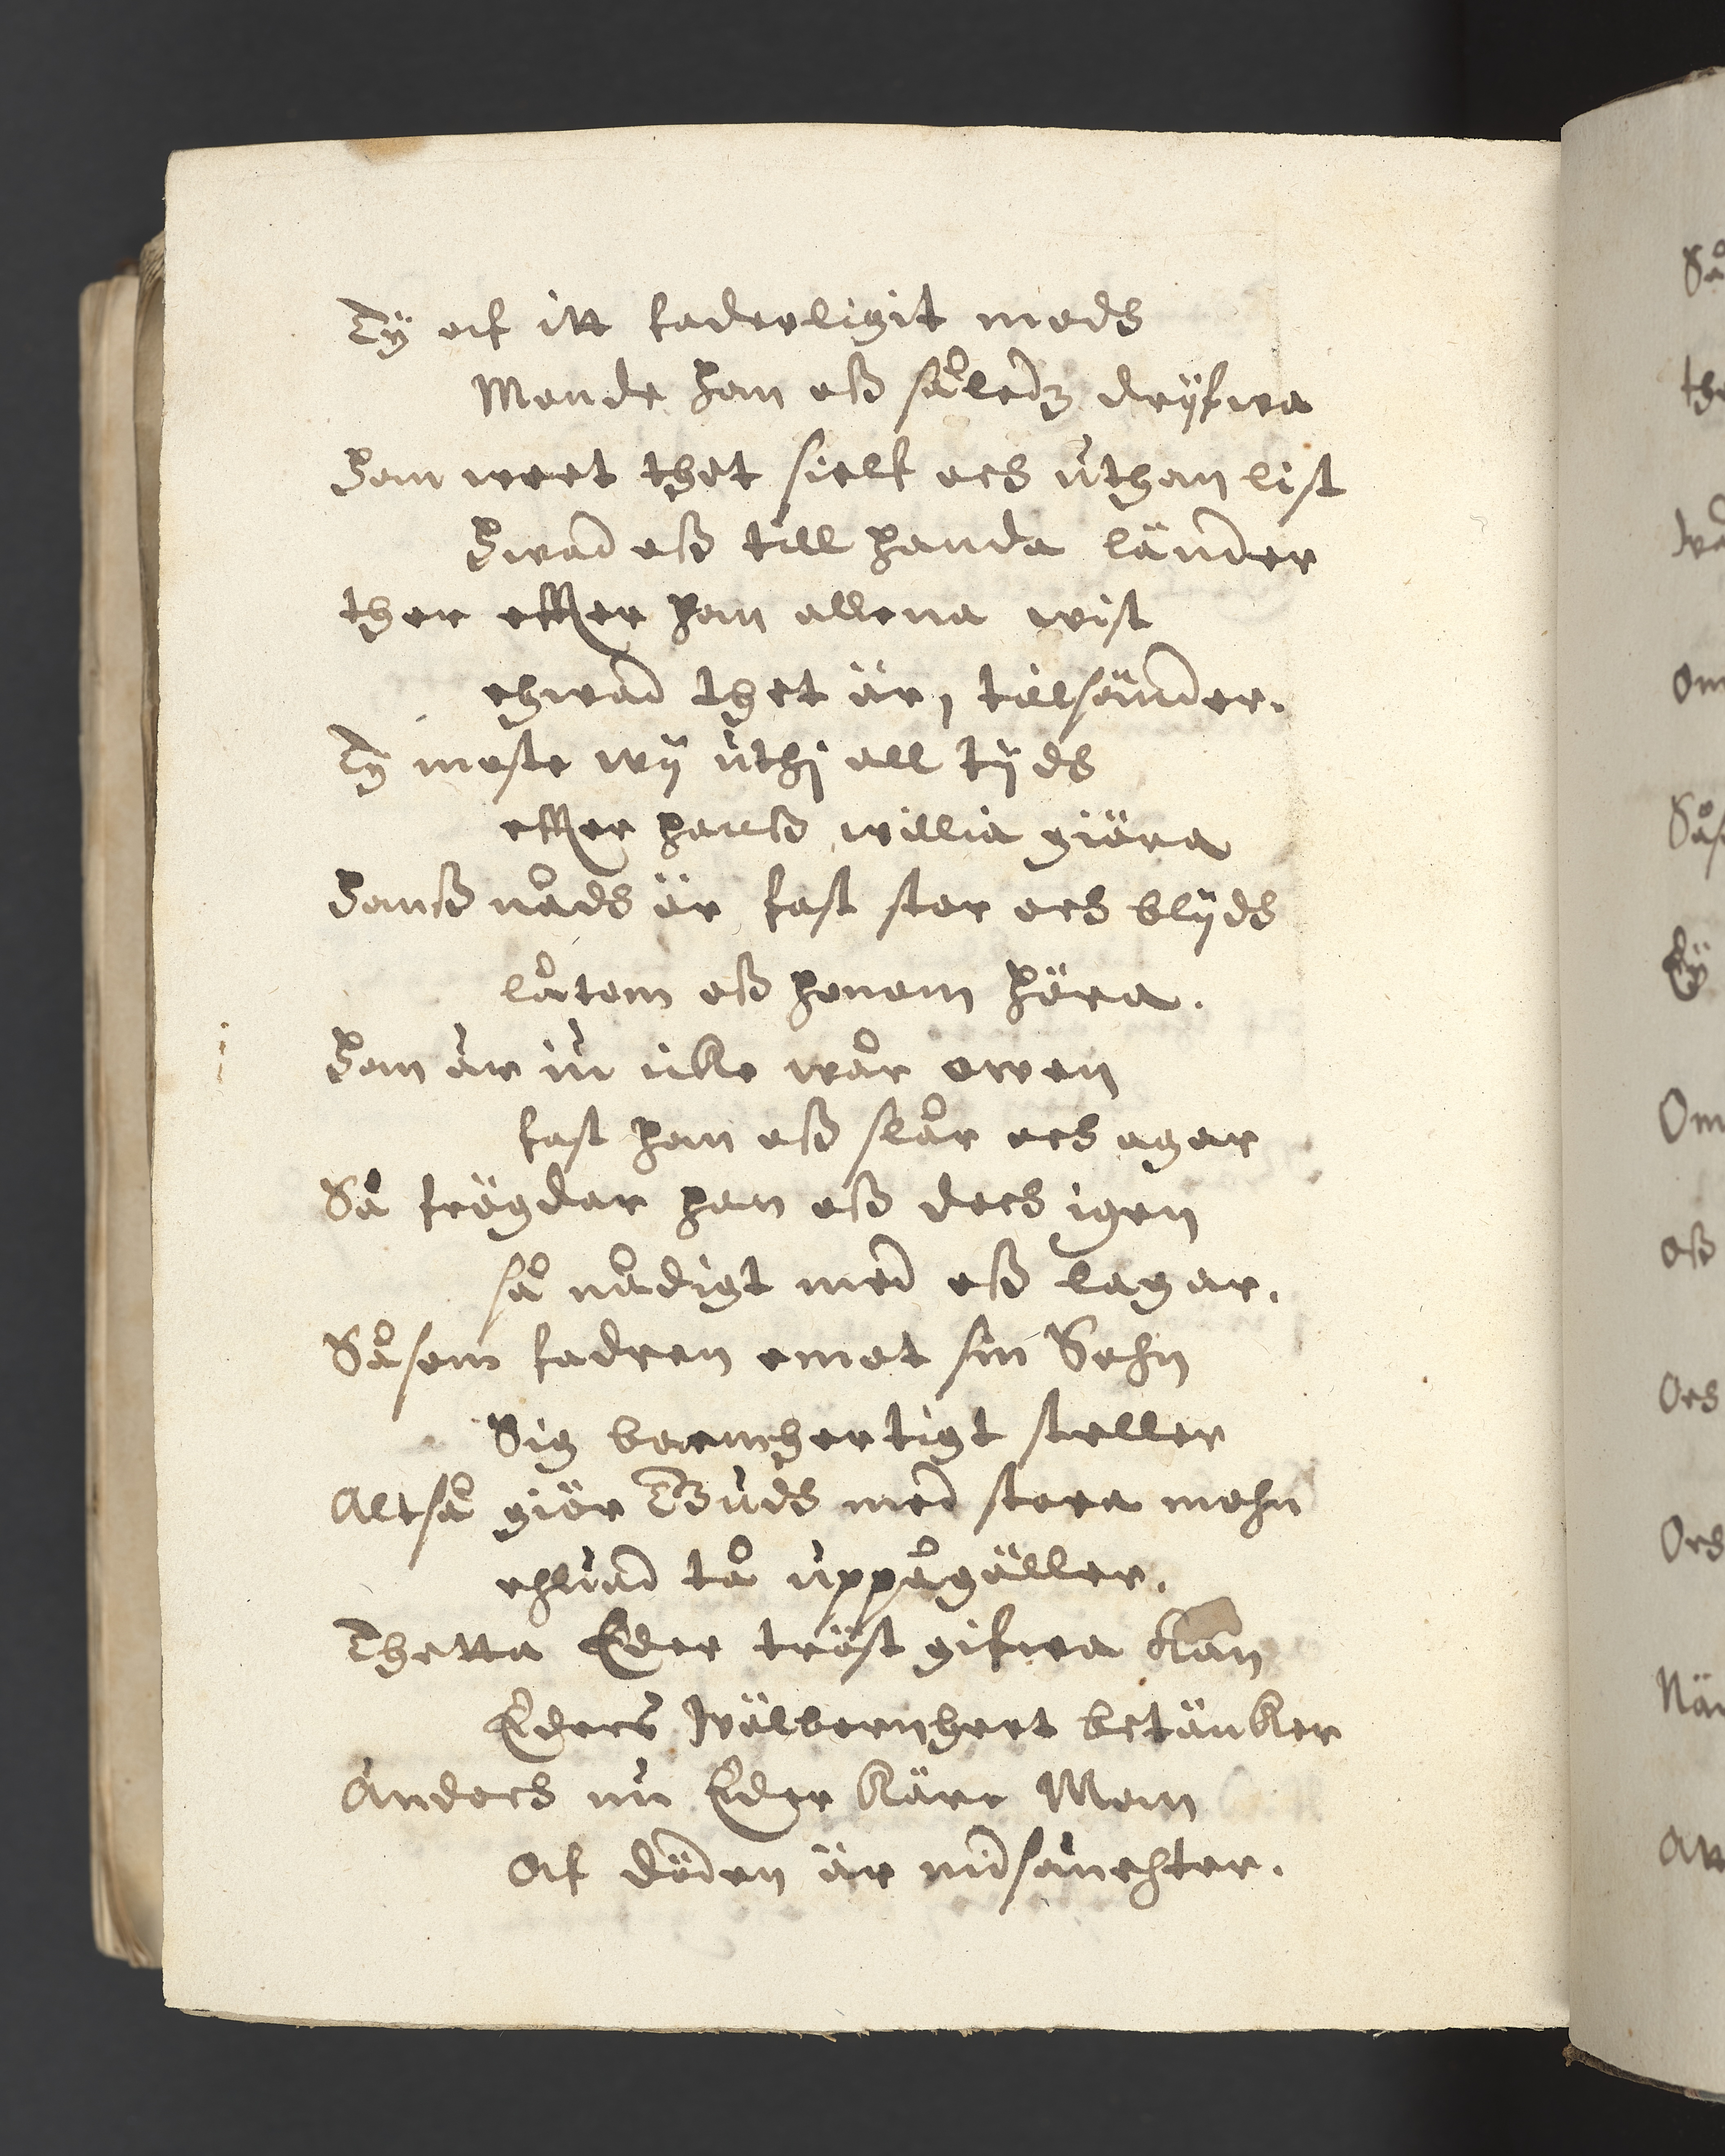 Ty af itt faderligit modh
Monde han oß såledz dryfwa
Han weet thet sielf och uthan list
Hwad oß till handa länder
ther effter han allena wist
ehwad thet är, tillsänder.
Ty moste wÿ uthj all tÿdh
effter hanß willia giöra
Hanß nådh är fast stor och blÿdh
låtom oß honom höra.
Han är iu icke wår owen
fast han oß slår och agar
Så frögdar han oß doch igen
så nådigt med oß lagar.
Såsom fadren emot sin Sohn
Sig barmhertigt steller
Altså giör Gudh med stora mohn
ehuad tå uppågäller.
Thetta Eder tröst gifwa kan
Eders Wälbornheet betänker
Ändoch nu Eder käre Man
Af döden är
Så
the
Om
Ty
Om
oß
Och
Och